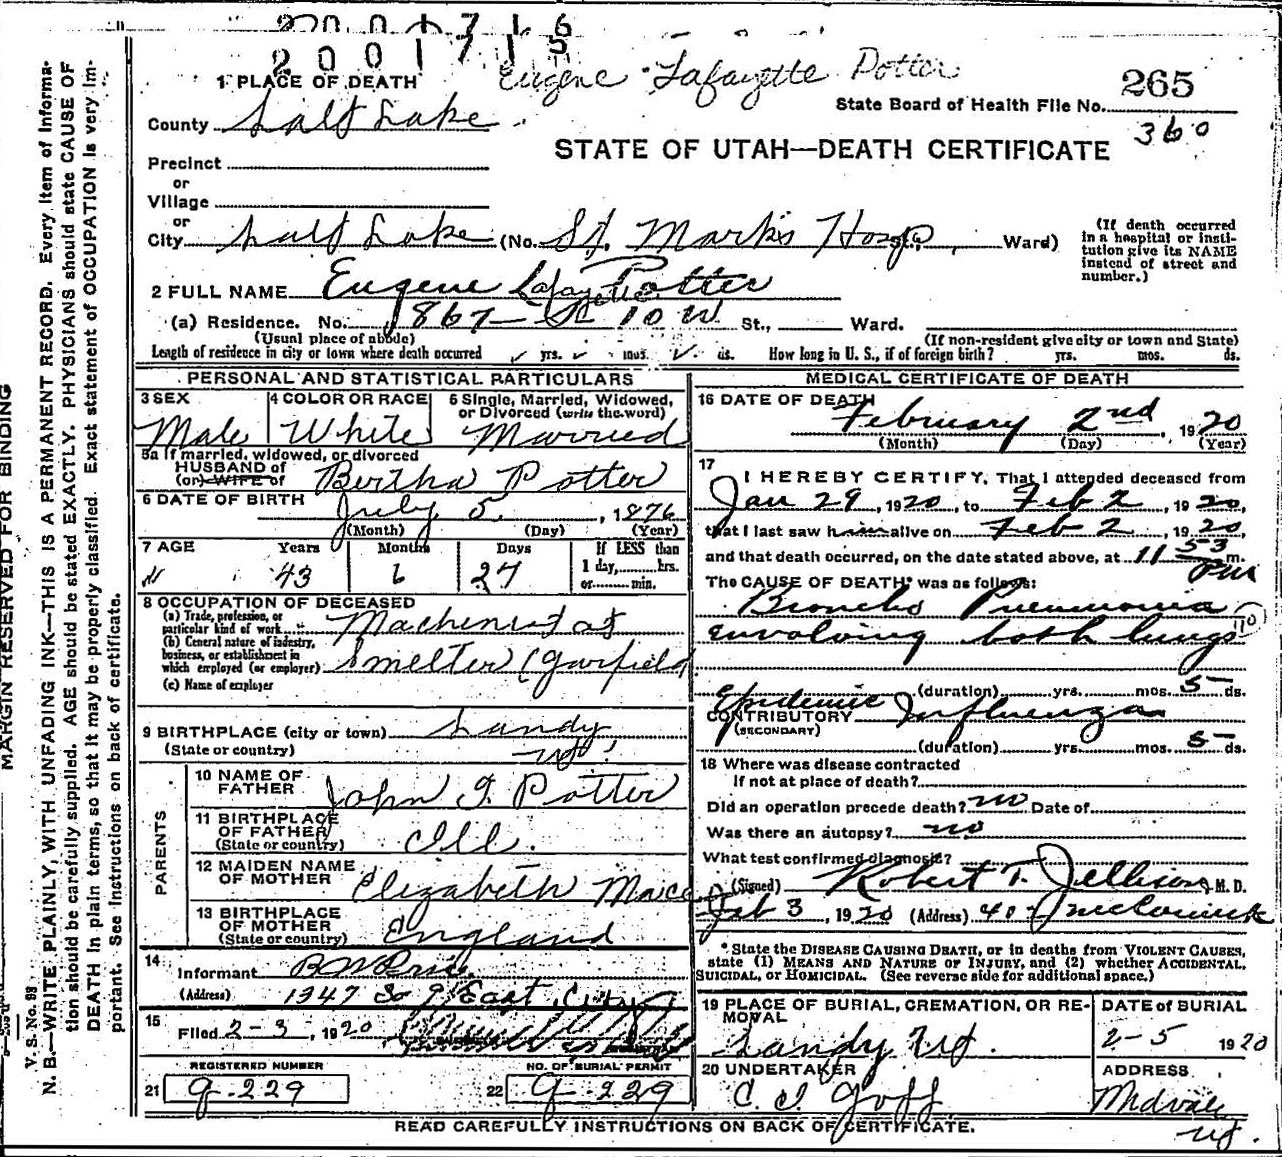 2001716
2001715
Eugene Lafayette Potter
1 PLACE OF DEATH
265
State Board of Health File No.
360
County Salt Lake
STATE OF UTAH—DEATH CERTIFICATE
Precinct
or
Village
or
City Salt Lake (No. St. Marks Hosp St., Ward)
(If death occurred in a hospital or insti-
tution give its NAME
instead of street and
number.)
2 FULL NAME Eugene Lafayette Potter
(a) Residence. No. 867 So 10 W St., Ward.
(Usual place of abode) (If non-resident give city or town and State)
Length of residence in city or town where death occurred yrs. mos. ds. How long in U. S., if of foreign birth? yrs. mos. ds.
PERSONAL AND STATISTICAL PARTICULARS
3 SEX 4 COLOR OR RACE 5 Single, Married, Widowed,
or Divorced (write the word)
Male White Married
5a If married, widowed, or divorced
HUSBAND of
(or) WIFE of Bertha Potter
6 DATE OF BIRTH
July 5, 1876
(Month) (Day) (Year)
7 AGE Years Months Days If LESS than
1 day, hrs.
or min.
43 6 27
8 OCCUPATION OF DECEASED
(a) Trade, profession, or
particular kind of work Machenist at
(b) General nature of industry,
business, or establishment in
which employed (or employer) Smelter (Garfield
(c) Name of employer
9 BIRTHPLACE (city or town) Sandy
(State or country) Ut
PARENTS
10 NAME OF
FATHER John I. Potter
11 BIRTHPLACE
OF FATHER
(State or country) Ill.
12 MAIDEN NAME
OF MOTHER Elizabeth
13 BIRTHPLACE
OF MOTHER
(State or country) England
14
Informant
(Address) 1347 So 9 East City
15
Filed 2-3, 1920
REGISTERED NUMBER NO. OF BURIAL PERMIT
21 9-229 22 9-229
MEDICAL CERTIFICATE OF DEATH
16 DATE OF DEATH
February 2nd, 1920
(Month) (Day) (Year)
17
I HEREBY CERTIFY, That I attended deceased from
Jan 29, 1920, to Feb 2, 1920,
that I last saw him alive on Feb 2, 1920,
and that death occurred, on the date stated above, at 11 53 m.
Pm
The CAUSE OF DEATH* was as follows:
Broncho Pneumonia
envolving both lungs
110
(duration) yrs. mos. 5 ds.
Epidemic
CONTRIBUTORY Influenza
(SECONDARY)
(duration) yrs. mos. 5 ds.
18 Where was disease contracted
if not at place of death?
Did an operation precede death? no Date of
Was there an autopsy? no
What test confirmed diagnosis?
(Signed) Robert T. Jellison, M. D.
Feb 3, 1920 (Address) 40- McCornick
* State the DISEASE CAUSING DEATH, or in deaths from VIOLENT CAUSES,
state (1) MEANS AND NATURE OF INJURY, and (2) whether ACCIDENTAL,
SUICIDAL, or HOMICIDAL. (See reverse side for additional space.)
19 PLACE OF BURIAL, CREMATION, OR RE-
MOVAL DATE of BURIAL
Sandy Ut. 2-5 1920
20 UNDERTAKER ADDRESS
C. I. Goff Midvale
Ut.
READ CAREFULLY INSTRUCTIONS ON BACK OF CERTIFICATE.
MARGIN RESERVED FOR BINDING
V. S. No. 98
N. B.—WRITE PLAINLY, WITH UNFADING INK—THIS IS A PERMANENT RECORD. Every item of informa-
tion should be carefully supplied. AGE should be stated EXACTLY. PHYSICIANS should state CAUSE OF
DEATH in plain terms, so that it may be properly classified. Exact statement of OCCUPATION is very im-
portant. See instructions on back of certificate.